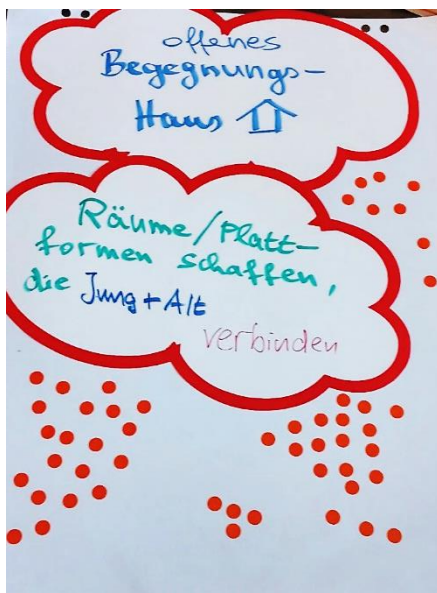 offenes
Begegnungs-
Haus
Räume/Platt-
formen schaffen,
die Jung+Alt
verbinden